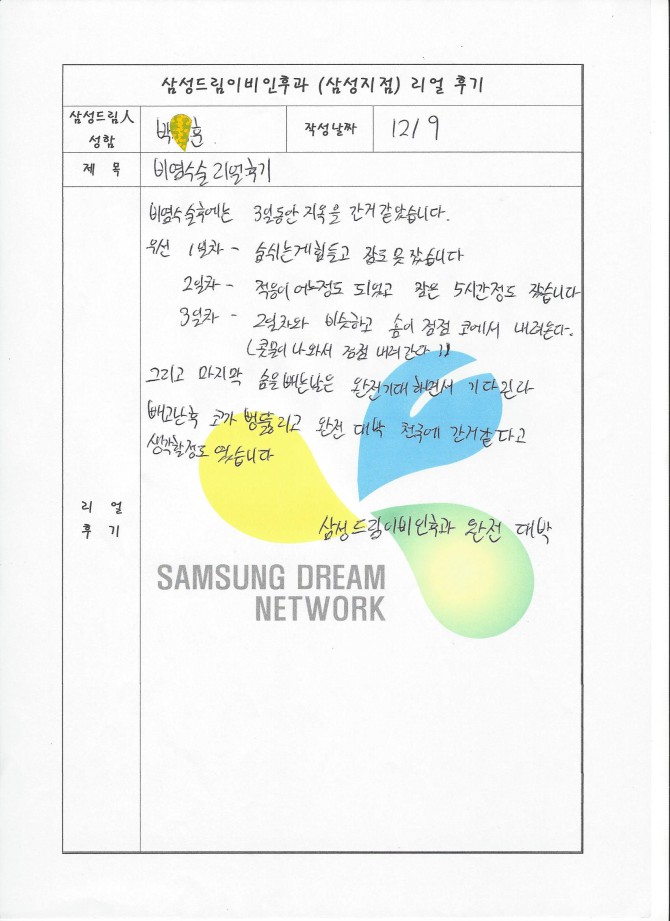 삼성드림이비인후과 (삼성지점) 리얼 후기
삼성드림人
성함
박 훈
작성날짜
12/9
제 목
비염수술 리얼후기
리 얼
후 기
비염수술후에는 3일동안 지옥을 간거 같았습니다.
우선 1일차 - 숨쉬는게 힘들고 잠도 못 잤습니다
2일차 - 적응이 어느정도 되었고 잠은 5시간정도 잤습니다
3일차 - 2일차와 비슷하고 솜이 점점 코에서 내려온다.
(콧물이 나와서 점점 내려간다!)
그리고 마지막 솜을 빼는날은 완전기대하면서 기다린다
빼고난후 코가 뻥뚫리고 완전 대박 천국에 간거같다고
생각할정도 였습니다
삼성드림이비인후과 완전 대박
SAMSUNG DREAM
NETWORK